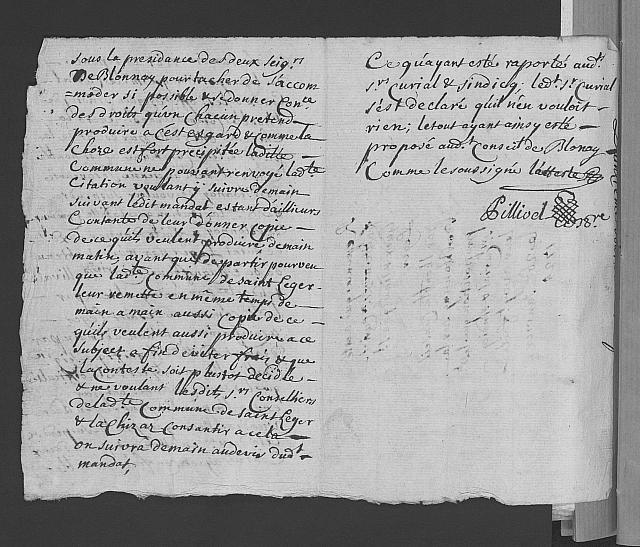 sous la presidance desdeux seigrs
De Blonnay pour tacher de s'accom
=moder si possible & se donner Conce
des droits qu'vn chacun pretend
produire a cest esgard & comme la
choze est fort precipitée ladite
Commune ne pouvant renvoyé ladte
Citation voulant y suivre demain
suivant ledit mandat estant d'aillieurs
Contante de leur donner copie
de ce quils veulent produire demain
matin, ayant que de partir pourveu
que ladte Commune de saint Leger
leur remette en mème temps de
main a main aussi copie de ce
quils veulent aussi produire a ce
subject a fin d'eviter frais & que
la conteste soit plustot decidée
& ne voulant lesdits srs Conseilliers
de ladte Commune de saint Leger
& la Chizaz consantir a cela
on suivra demain audevis dudt
mandat,
Ce quayant esté raporté audt
sr Curial & sindicq, ledt sr Curial
s'est declaré quil n'en vouloit
rien; le tout ayant ainsy esté
proposé audt Conseil de Blonay
Comme le soussigné l'atteste
Pilliod